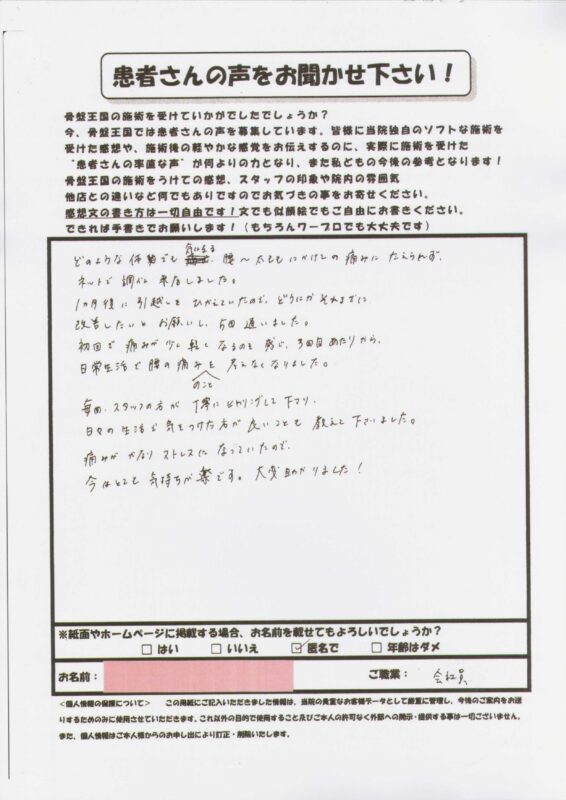 患者さんの声をお聞かせ下さい！
骨盤王国の施術を受けていかがでしたでしょうか？
今、骨盤王国では患者さんの声を募集しています。皆様に当院独自のソフトな施術を
受けた感想や、施術後の軽やかな感覚をお伝えするのに、実際に施術を受けた
"患者さんの率直な声"が何よりの力となり、また私どもの今後の参考となります！
骨盤王国の施術をうけての感想、スタッフの印象や院内の雰囲気
他店との違いなど何でもありですのでお気づきの事をお寄せください。
感想文の書き方は一切自由です！文でも似顔絵でもご自由にお書きください。
できれば手書きでお願いします！（もちろんワープロでも大丈夫です）
どのような体勢でも 気になる 腰〜太ももにかけての痛みにたえられず、
ネットで調べ来店しました。
1ヵ月後に引越しをひかえていたので、どうにかそれまでに
改善したいとお願いし、5回通いました。
初回で痛みが少し軽くなるのを感じ、3回目あたりから、
日常生活で腰の痛みのことを考えなくなりました。
毎回、スタッフの方が丁寧にヒヤリングして下さり、
日々の生活で気をつけた方が良いことも教えて下さいました。
痛みがかなりストレスになっていたので、
今はとても気持ちが楽です。大変助かりました！
※紙面やホームページに掲載する場合、お名前を載せてもよろしいでしょうか？
□ はい □ いいえ ☑ 匿名で □ 年齢はダメ
お名前： ご職業： 会社員
＜個人情報の保護について＞ この用紙にご記入いただきました情報は、当院の貴重なお客様データとして厳重に管理し、今後のご案内をお送
りするためのみに使用させていただきます。これ以外の目的で使用すること及びご本人の許可なく外部への開示・提供する事は一切ございません。
また、個人情報はご本人様からのお申し出により訂正・削除いたします。